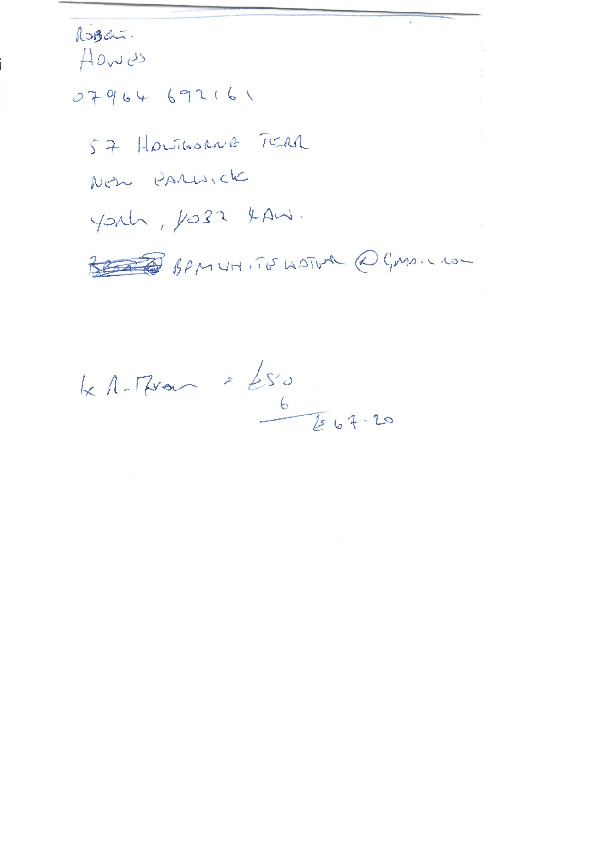 Robert.
Howes
07964 692161
57 Hawthorne Terr
New Earswick
York, YO32 4AW.
BPMWHITEWATER @Gmail.com
1x = £50
6
£67-20